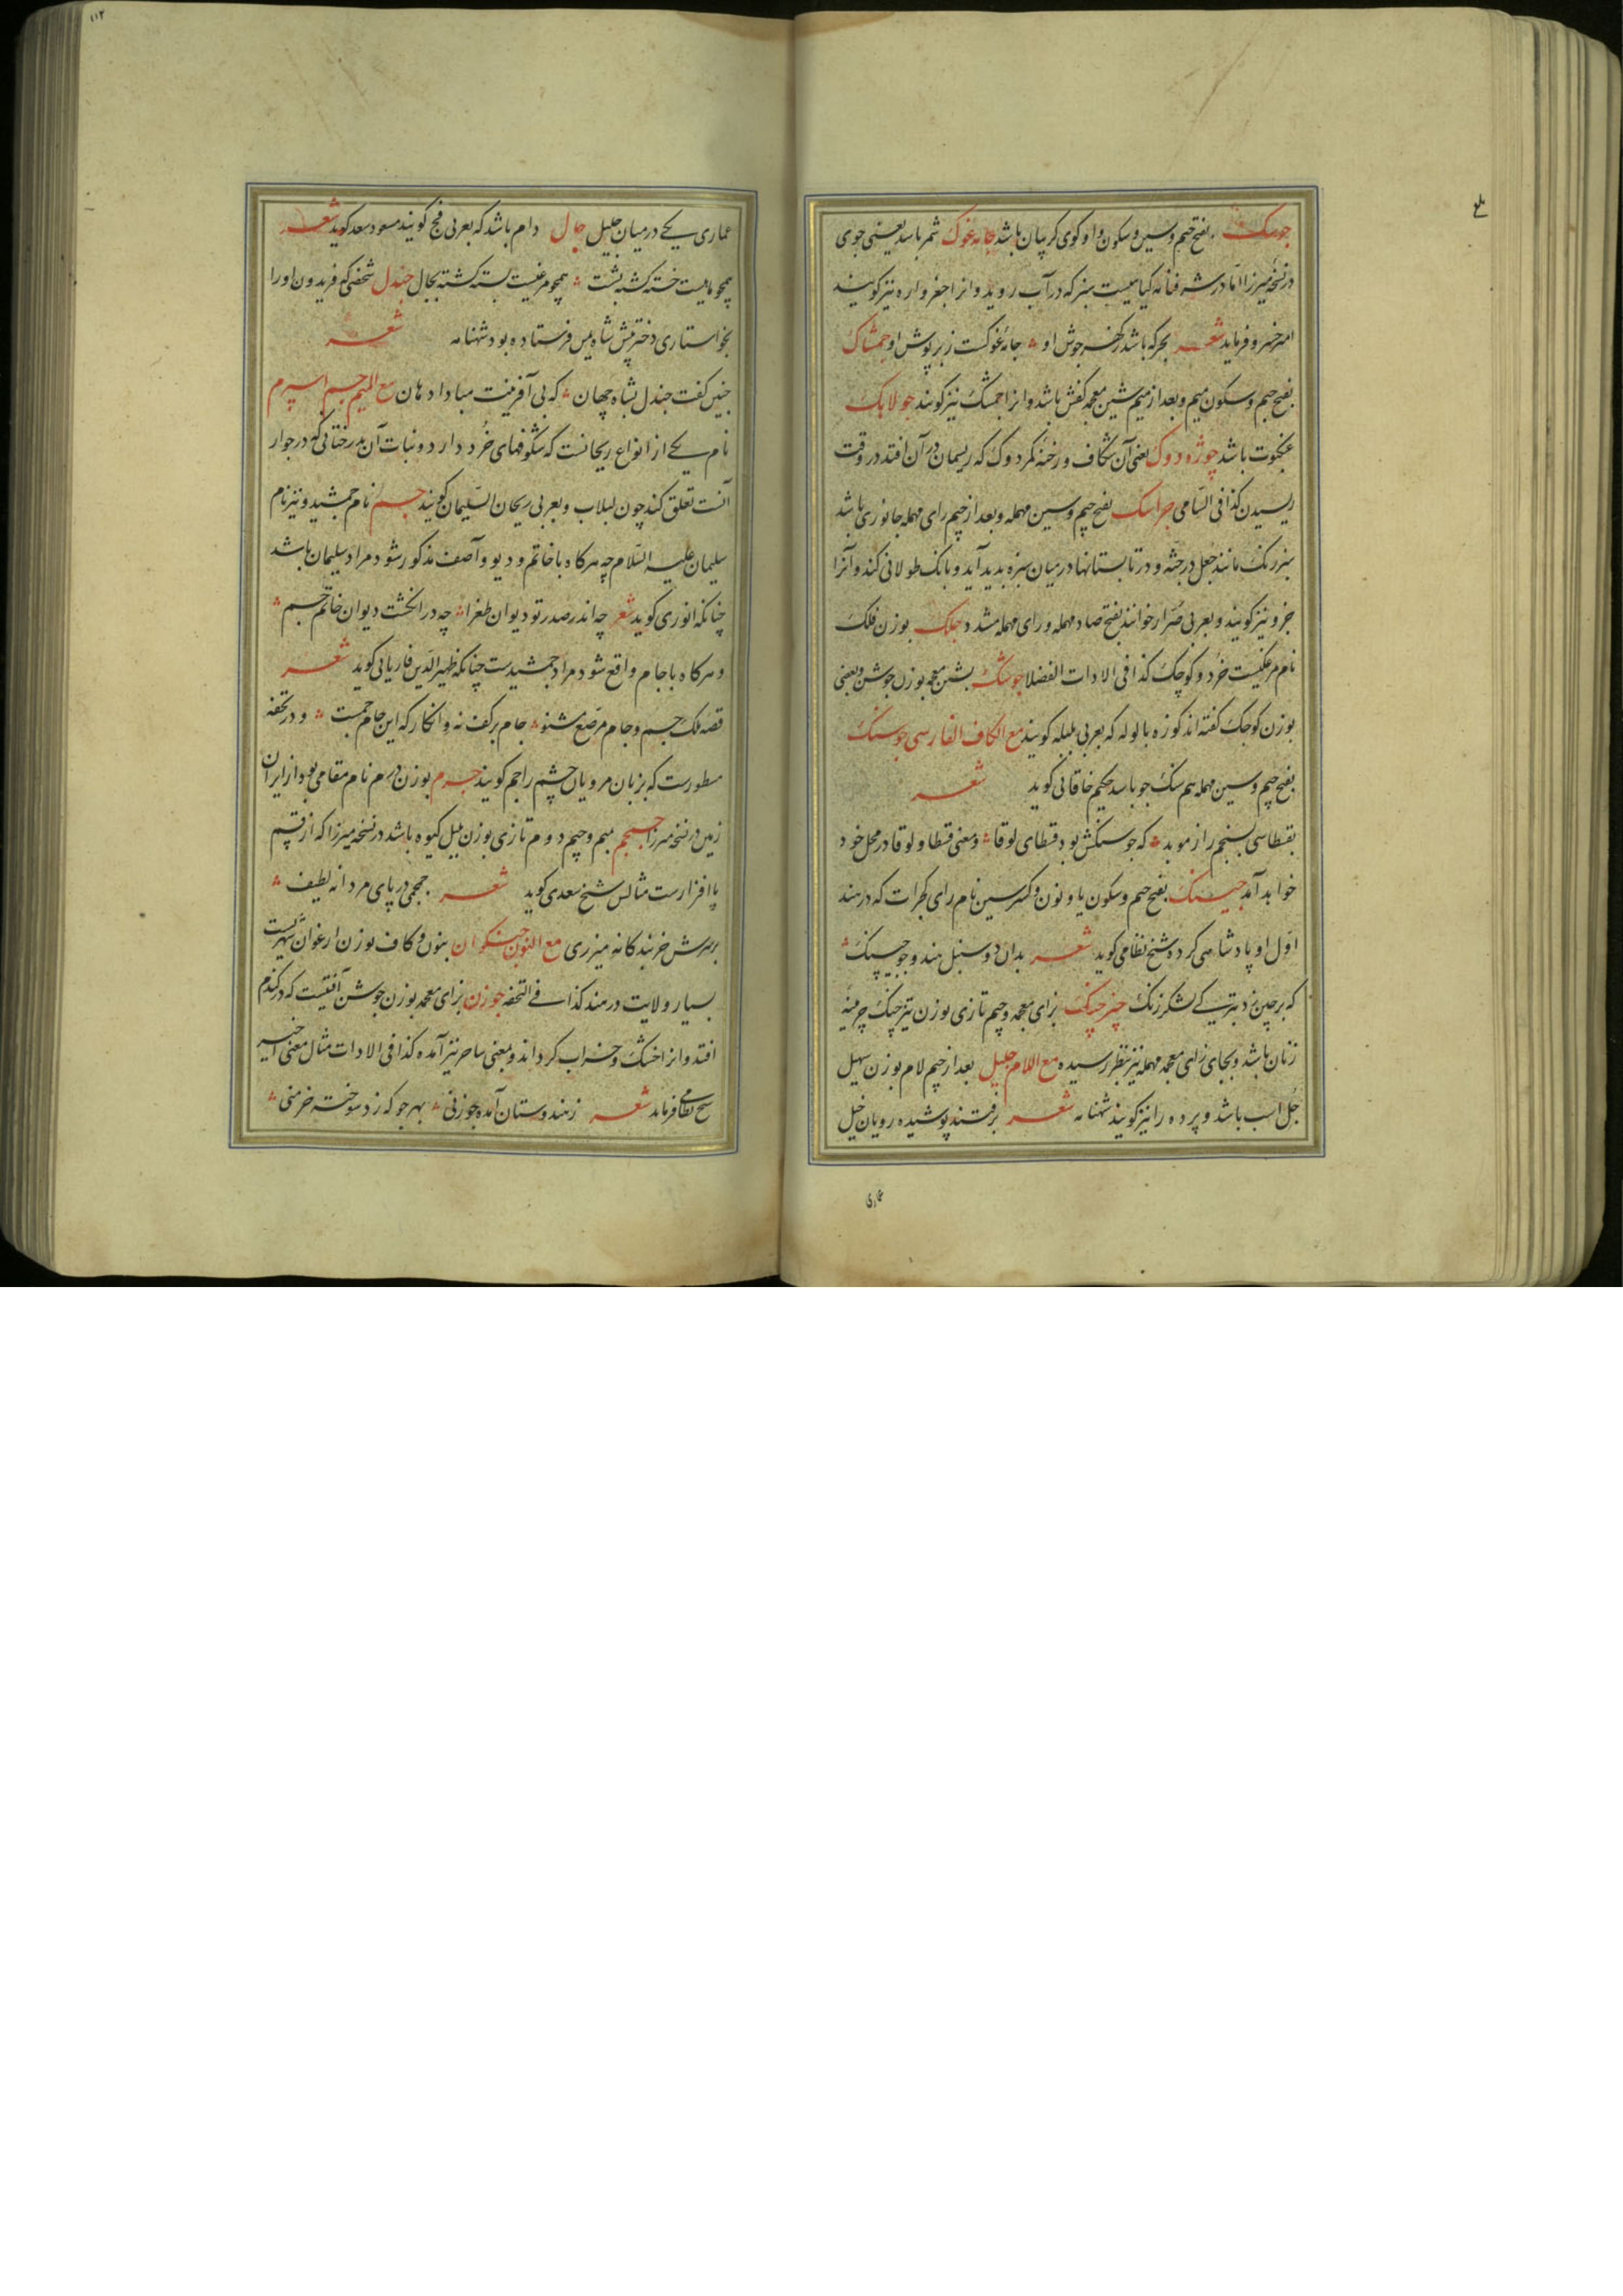 جوسک بفتح جیم و سین و سکون واو کوی کریبان باشد جامه غوک شمر باشد یعنی جوی
در نسخهٔ میرزا اما در شرفنامه کیاهیست سبز که در آب روید و انرا جغرواره نیز کویند
امیر خسرو فرماید شعر بحر که باشد ز کف جوش او جامهٔ غوکست ز بر پوش او جمشاک
بفتح جیم و سکون میم و بعد از میم شین معجمه کفش باشد و انرا جمشک نیز کویند جولاهک
عنکبوت باشد جوژه دوک یعنی آن شکاف و رخنه کمر دوک که ریسمان در آن افتد در وقت
ریسیدن کذا فی السامی جراسک بفتح جیم و سین مهمله و بعد از جیم رای مهمله جانوری باشد
سبز رنک مانند جعل در جثه و در تابستانها در میان سبزه بدید آید و بانک طولانی کند و آنرا
جزو نیز کویند و بعربی صرار خوانند بفتح صاد مهمله و رای مهمله مشدد جلک بوزن فلک
نام مرغکیست خرد و کوچک کذا فی الادات الفضلا جوشک بشین معجمه بوزن جوشن و بعضی
بوزن کوجک کفته‌اند کوزه با لوله که بعربی بلبله کویند مع الکاف الفارسی جوسنک
بفتح جیم و سین مهمله هم سنک جو باشد حکیم خاقانی کوید شعر
بقسطاسی بسنجم راز موبد که جوسنکش بود قسطای لوقا و معنی قسطا و لوقا در محل خود
خواهد آمد جیسنک بفتح جیم و سکون یا و نون و کسر سین نام رای کجرات که در هند
اول او پادشاهی کرده شیخ نظامی کوید شعر بدان دو سنبل هند و جو جیپنک
که بر چین زد لشکر زنک جیزجپنک بزای معجمه و جیم تازی بوزن تیزچنک چرمینهٔ
زنان باشد و بجای زای معجمه مهمله نیز بنظر رسیده مع اللام جلیل بعد از جیم لام بوزن سهیل
جل اسب باشد و پرده را نیز کویند شهنامه شعر برفتند پوشیده رویان خیل
عماری
۱۱۲
عماری یکی در میان جلیل جال دام باشد که بعربی فخ کویند مسعود سعد کوید شعر
همچو ماهیست خسته کشته بشست همچو مرغیست بسته کشته بجال جندل شخصی که فریدون او را
بخواستاری دختر پیش شاه یمن فرستاده بود شهنامه شعر
چنین کفت جندل بشاه جهان که بی آفرینت مبادا دهان مع المیم جم اسپرم
نام یکی از انواع ریحانست که شکوفهای خرد دارد و نبات آن بدرختانی که در جوار
آنست تعلق کند چون لبلاب و بعربی ریحان السلیمان کویند جم نام جمشید و نیز نام
سلیمان علیه السلام چه هرکاه با خاتم و دیو و آصف مذکور شود مراد سلیمان باشد
چنانکه انوری کوید شعر چه اندر صدر تو دیوان طغرا چه در انکشت دیوان خاتم جم
و هرکاه با جام واقع شود مراد جمشیدست چنانکه ظهیر الدین فاریابی کوید شعر
قصه ملک جم و جام مرصع مشنو جام بر کف نه و انکار که این جام جمست و در تحفه
مسطورست که بزبان مرویان چشم را جم کویند جرم بوزن درم نام مقامی بود از ایران
زمین در نسخه میرزا جمجم بمیم و جیم دوم تازی بوزن بلبل کیوه باشد در نسخه میرزا که از قسم
پا افزارست مثالش شیخ سعدی کوید شعر جمجمی در پای مردانه لطیف
بر سرش خربندکانه میزری مع النون جنکوان بنون و کاف بوزن ارغوان شهریست
بسیار ولایت در هند کذا فی التحفه جوزن بزای معجمه بوزن جوشن آفتیست که در کندم
افتد و انرا خشک و خراب کرداند و بمعنی ساحر نیز آمده کذا فی الادات مثال معنی اخیر
شیخ نظامی فرماید شعر ز هندوستان آمده جوزنی بهر جو که زد سوخته خرمنی